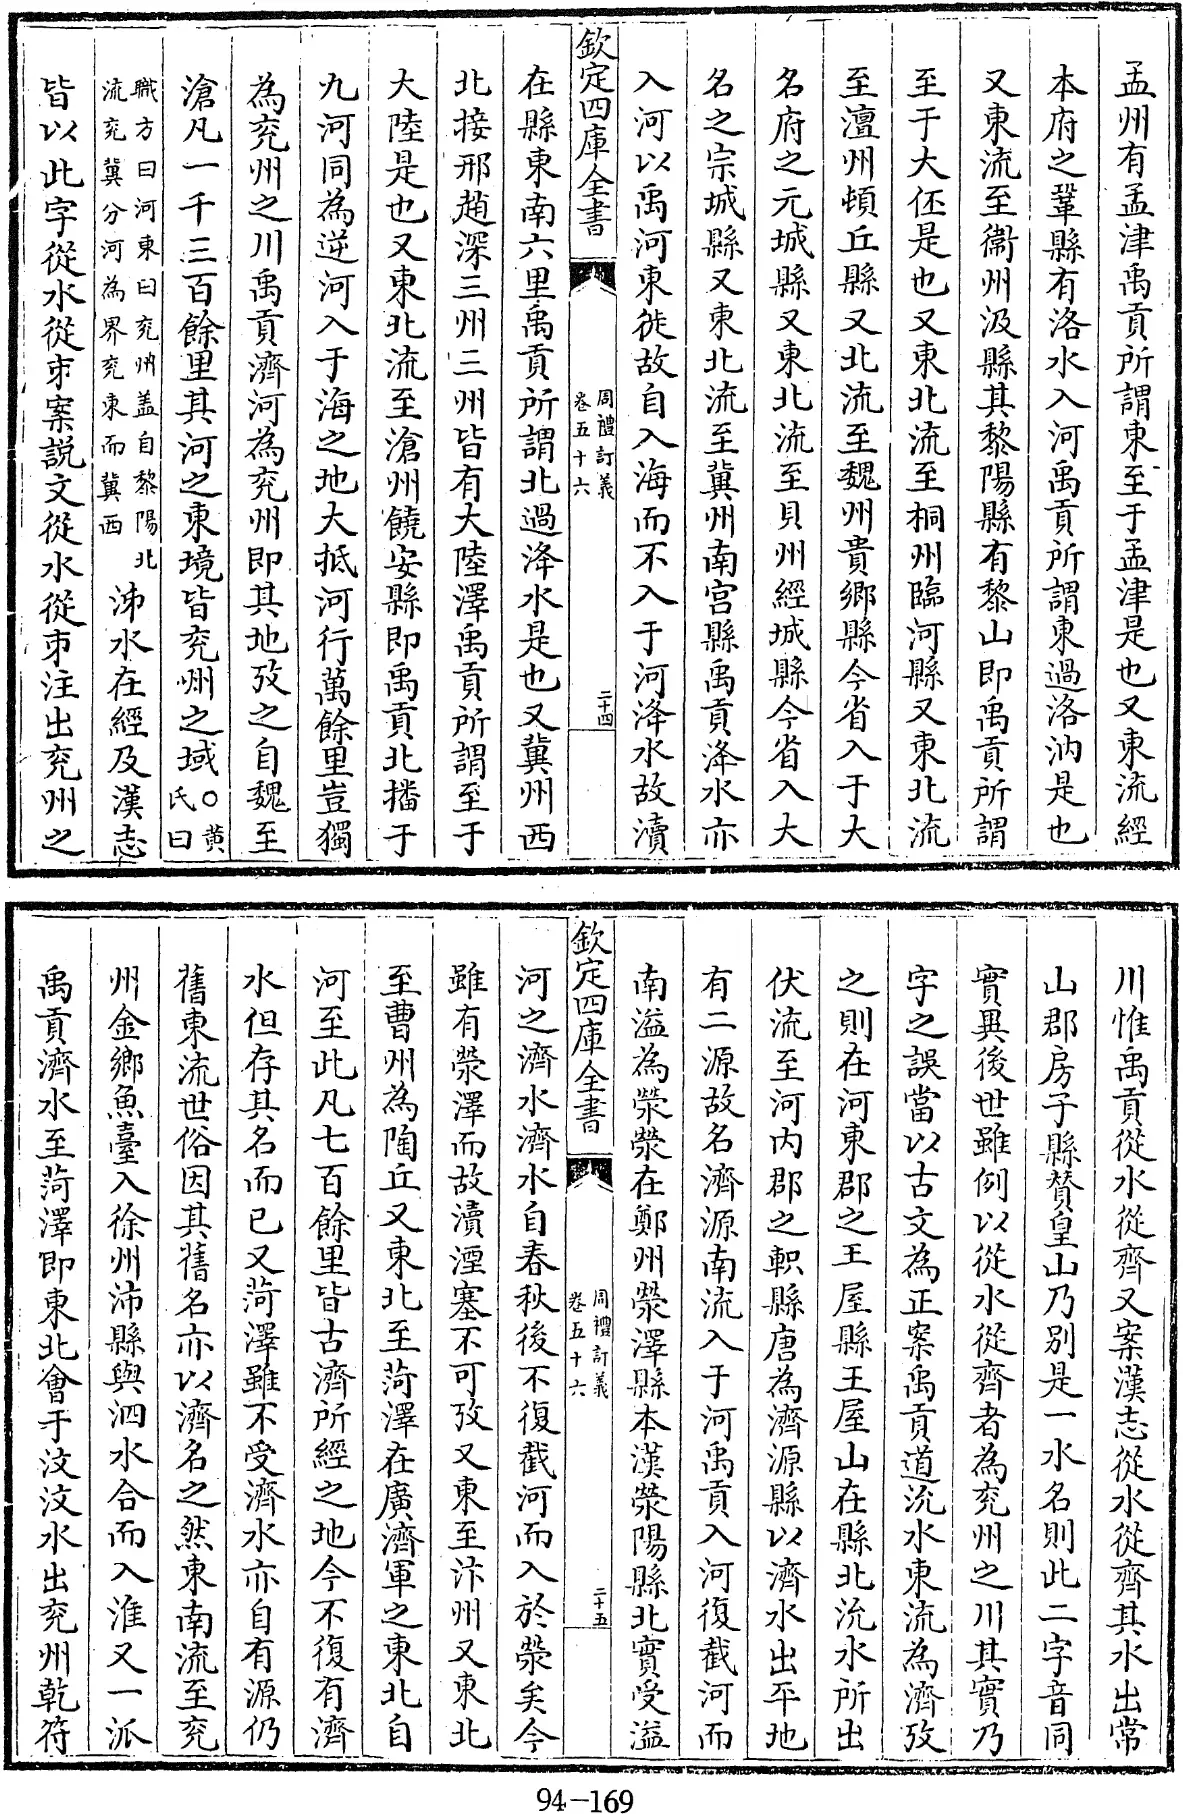 孟州有孟津禹貢所謂東至于孟津是也又東流經
本府之鞏縣有洛水入河禹貢所謂東過洛汭是也
又東流至衞州汲縣其黎陽縣有黎山即禹貢所謂
至于大伾是也又東北流至桐州臨河縣又東北流
至澶州頓丘縣又北流至魏州貴鄉縣今省入于大
名府之元城縣又東北流至貝州經城縣今省入大
名之宗城縣又東北流至冀州南宫縣禹貢洚水亦
入河以禹河東徙故自入海而不入于河洚水故瀆
欽定四庫全書
周禮訂義
卷五十六
二十四
在縣東南六里禹貢所謂北過洚水是也又冀州西
北接邢趙深三州三州皆有大陸澤禹貢所謂至于
大陸是也又東北流至滄州饒安縣即禹貢北播于
九河同為逆河入于海之地大抵河行萬餘里豈獨
為兖州之川禹貢濟河為兖州即其地攷之自魏至
滄凡一千三百餘里其河之東境皆兖州之域○黄氏曰
職方曰河東曰兖州盖自黎陽北
流兖冀分河為界兖東而冀西
泲水在經及漢志
皆以此字從水從𠂔案説文從水從𠂔注出兖州之
川惟禹貢從水從齊又案漢志從水從齊其水出常
山郡房子縣贊皇山乃别是一水名則此二字音同
實異後世雖例以從水從齊者為兖州之川其實乃
字之誤當以古文為正案禹貢道沇水東流為濟攷
之則在河東郡之王屋縣王屋山在縣北沇水所出
伏流至河内郡之軹縣唐為濟源縣以濟水出平地
有二源故名濟源南流入于河禹貢入河復截河而
南溢為滎滎在鄭州滎澤縣本漢滎陽縣北實受溢
欽定四庫全書
周禮訂義
卷五十六
二十五
河之濟水濟水自春秋後不復截河而入於滎矣今
雖有滎澤而故瀆湮塞不可攷又東至汴州又東北
至曹州為陶丘又東北至菏澤在廣濟軍之東北自
河至此凡七百餘里皆古濟所經之地今不復有濟
水但存其名而已又菏澤雖不受濟水亦自有源仍
舊東流世俗因其舊名亦以濟名之然東南流至兖
州金鄉魚臺入徐州沛縣與泗水合而入淮又一派
禹貢濟水至菏澤即東北會于汶汶水出兖州乾符
94-169